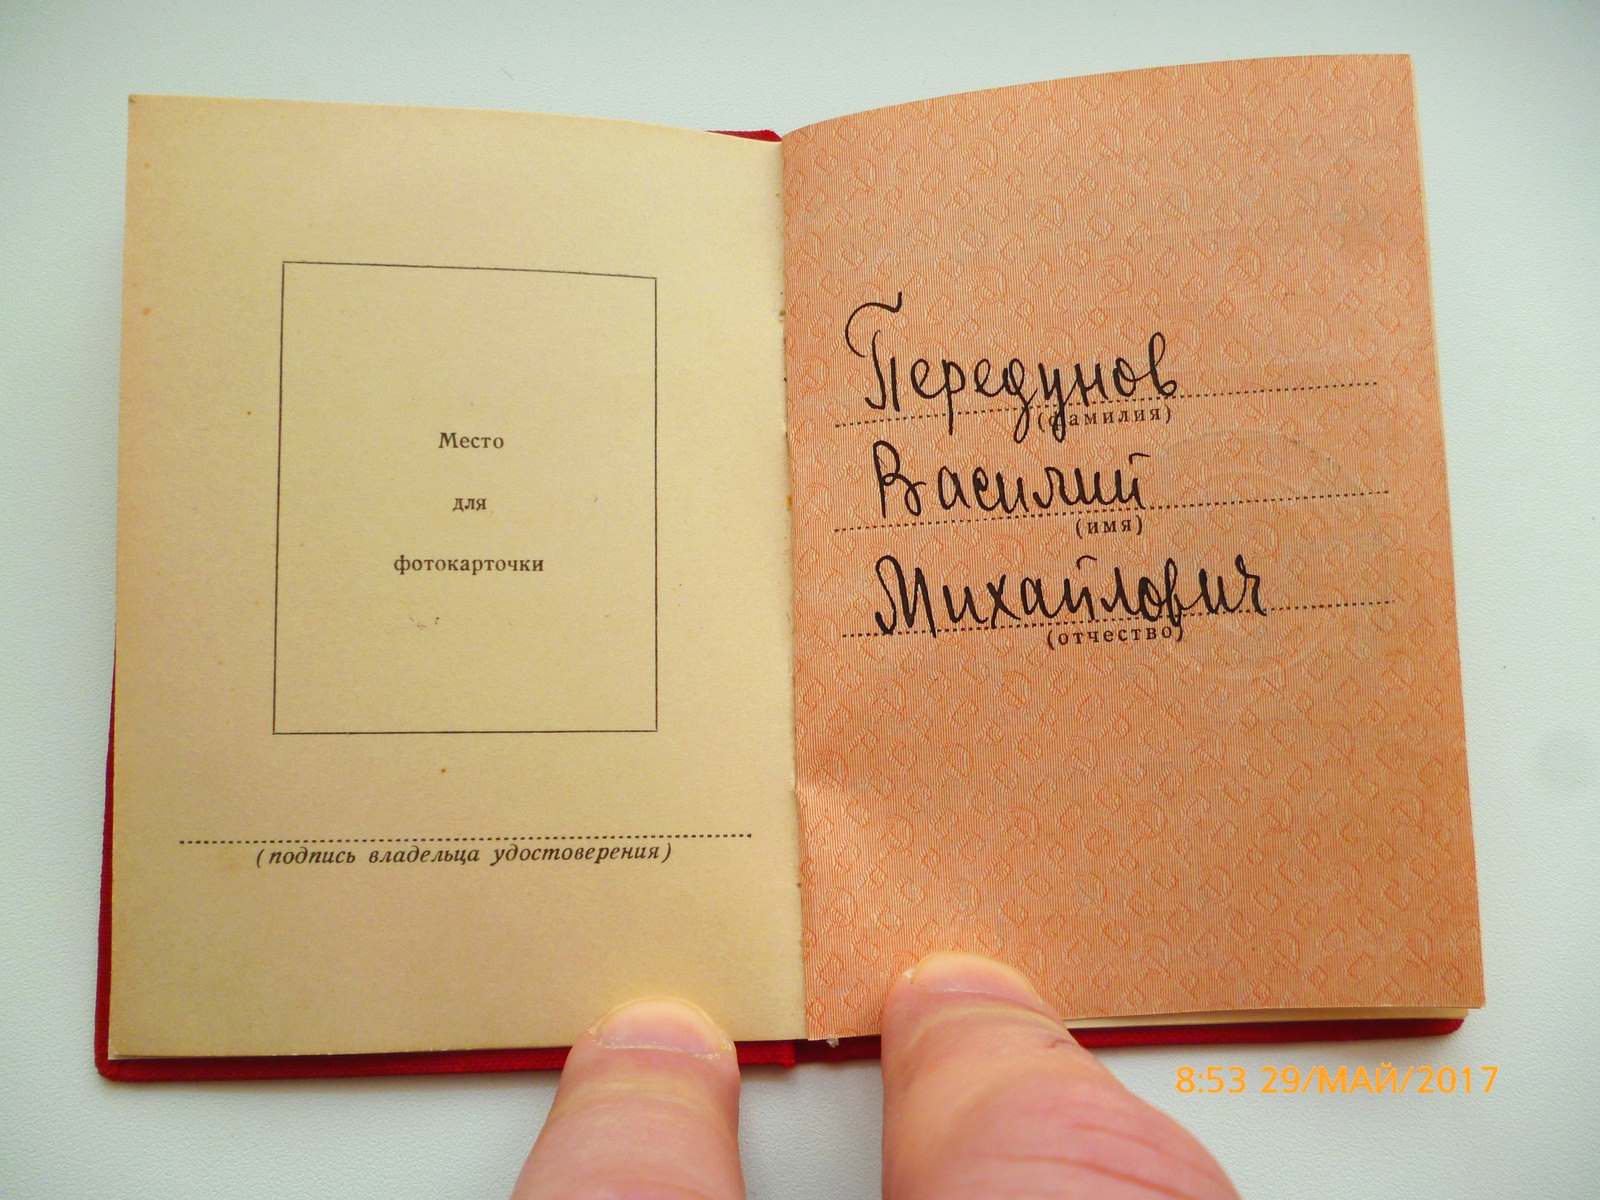 Место
для
фотокарточки
(подпись владельца удостоверения)
Передунов
(фамилия)
Василий
(имя)
Михайлович
(отчество)
8:53 29/МАЙ/2017